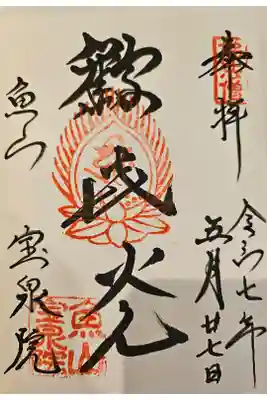 奉拝
令和七年
五月廿七日
歓喜光
魚山
宝泉院